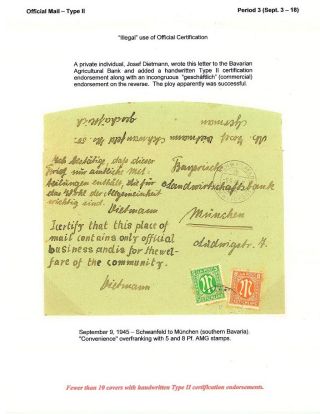 Official Mail – Type II
Period 3 (Sept. 3 – 18)
"Illegal" use of Official Certification
A private individual, Josef Dietmann, wrote this letter to the Bavarian
Agricultural Bank and added a handwritten Type II certification
endorsement along with an incongruous "geschäftlich" (commercial)
endorsement on the reverse. The ploy apparently was successful.
geschäftlich
Josef Dietmann
Ich bestätige, daß dieser
Brief nur amtliche Mit-
teilungen enthält, die für
das Wohl der Allgemeinheit
wichtig sind.
Dietmann
I certify that this place of
mail contains only official
business and is for the wel-
fare of the community.
Dietmann
Bayerische
Landwirtschaftsbank
München
Ludwigstr. 7.
September 9, 1945 – Schwanfeld to München (southern Bavaria).
"Convenience" overfranking with 5 and 8 Pf. AMG stamps.
Fewer than 10 covers with handwritten Type II certification endorsements.